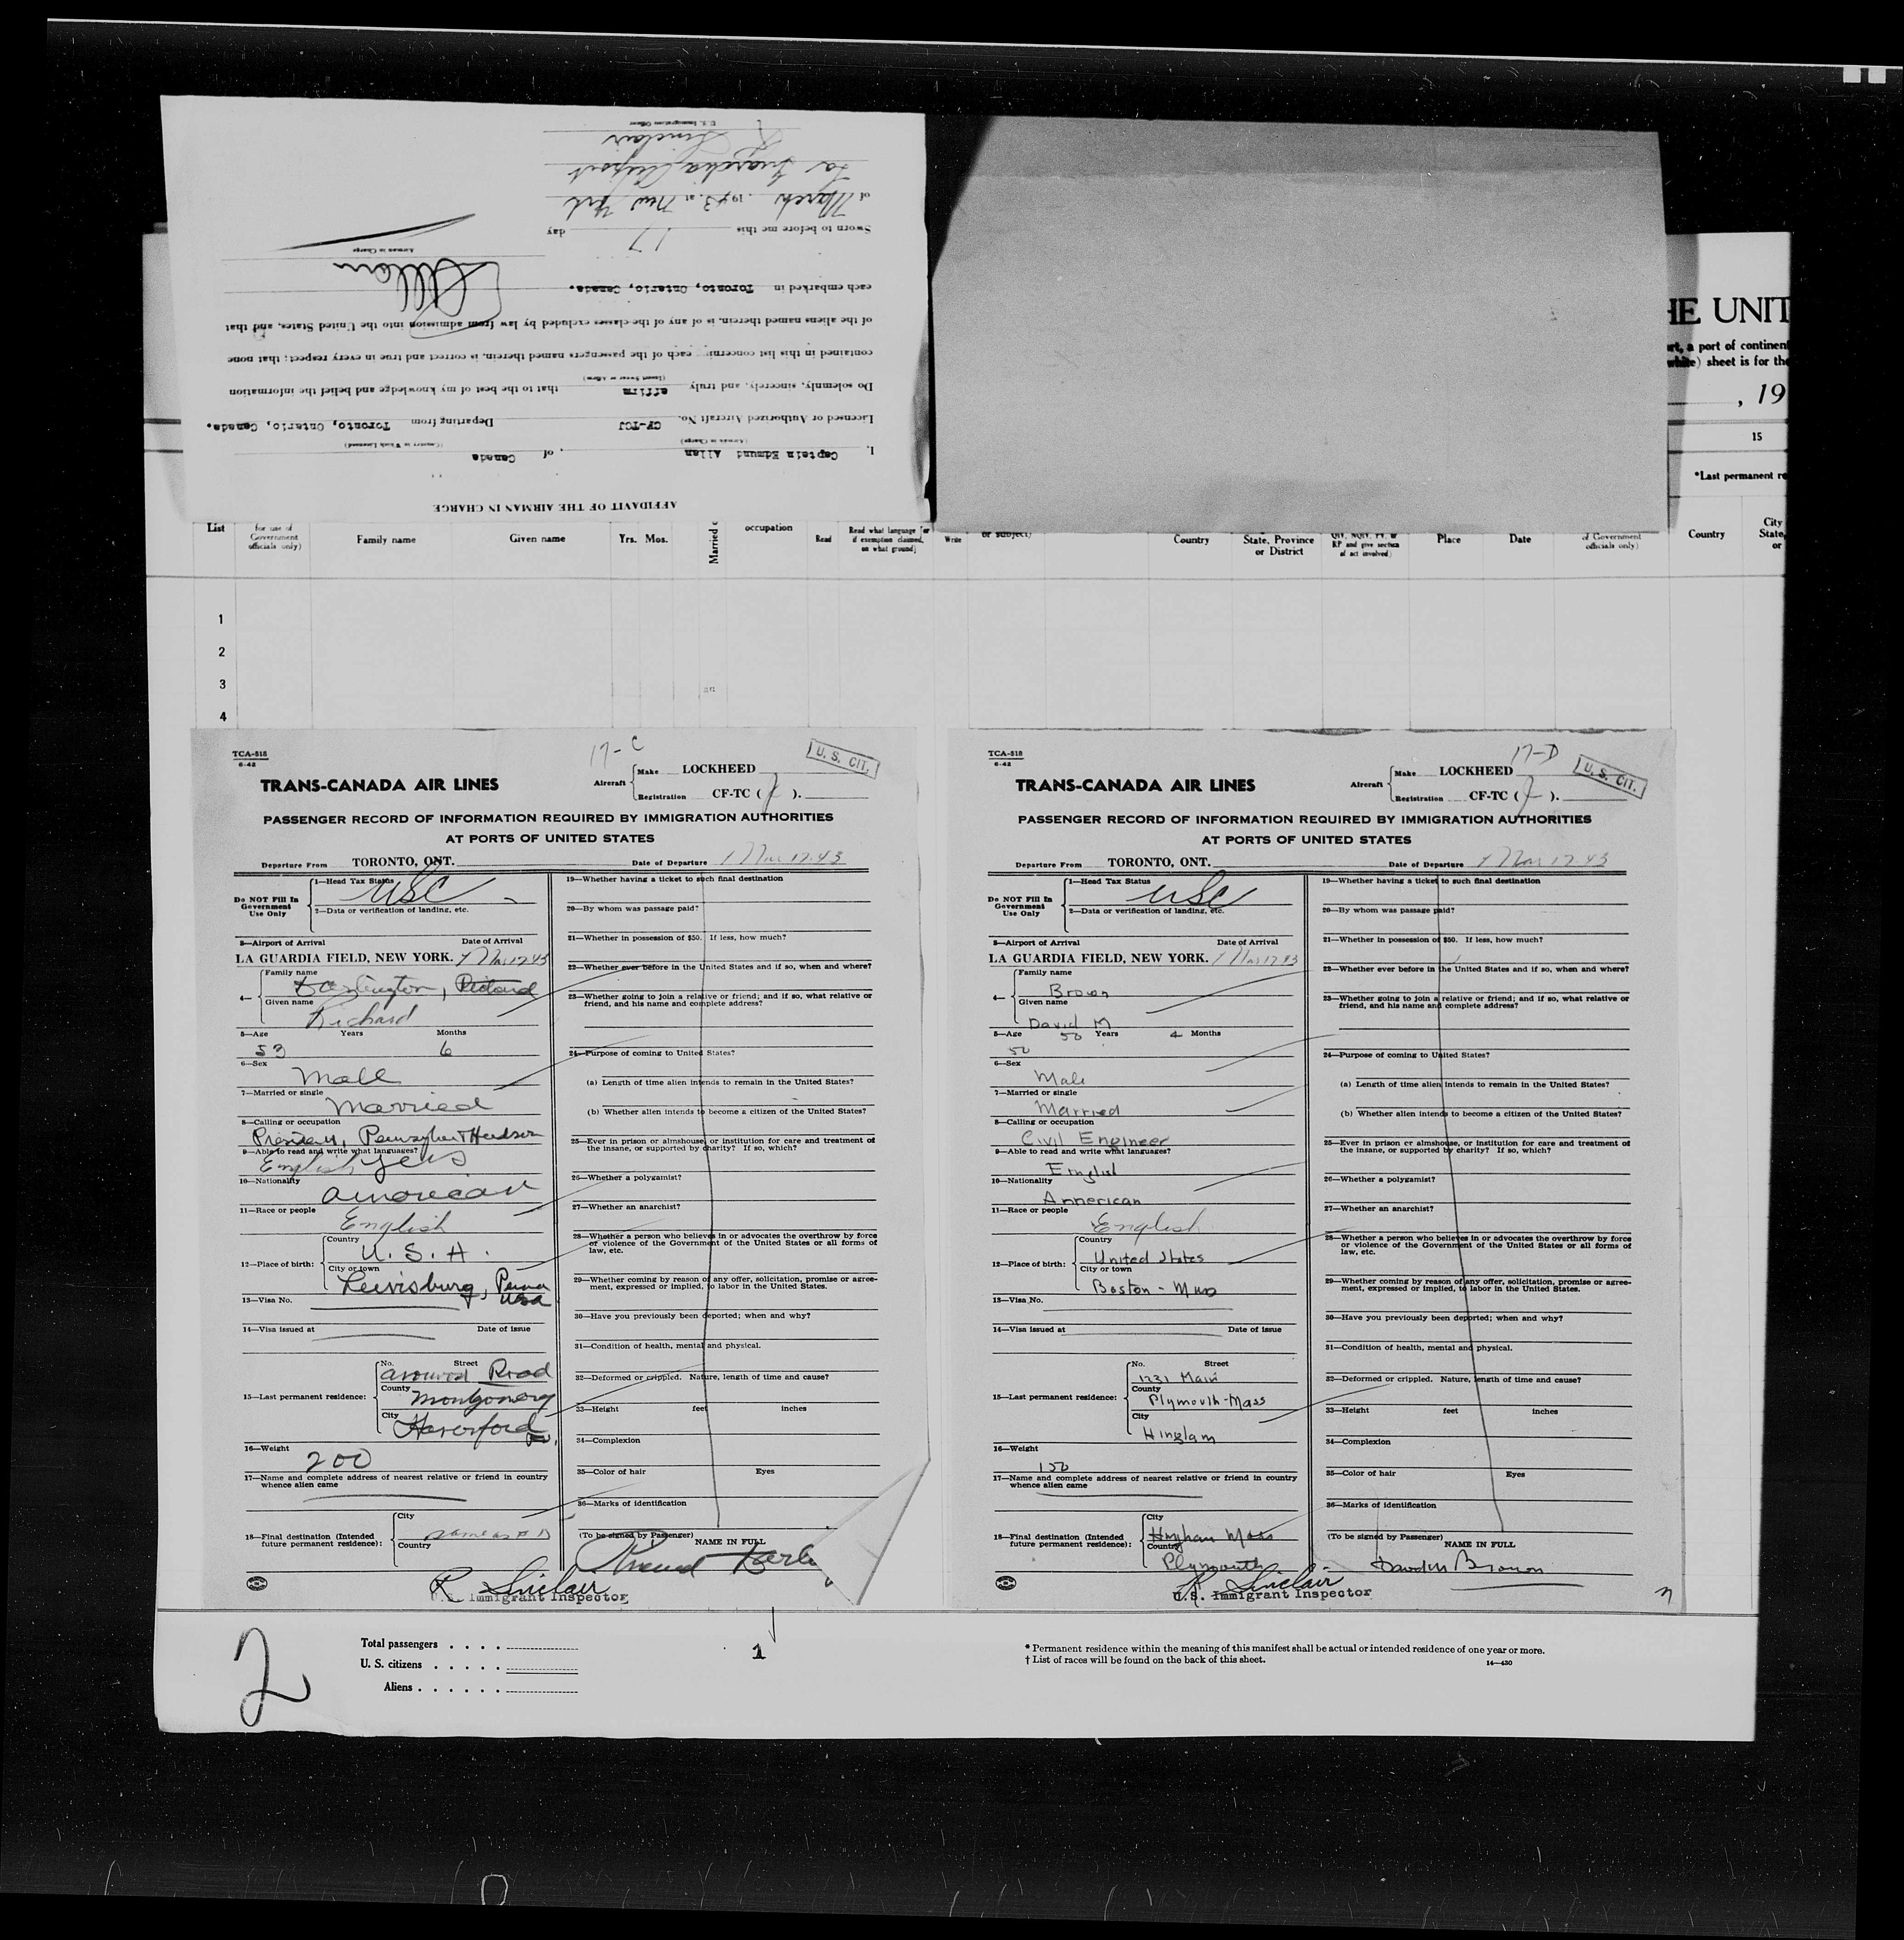 AFFIDAVIT OF THE AIRMAN IN CHARGE
I, Captain Edmund Allan, of Canada
(Airman in Charge) (Country in Which Licensed)
Licensed or Authorized Aircraft No. CF-TCJ Departing from Toronto, Ontario, Canada.
Do solemnly, sincerely, and truly affirm that to the best of my knowledge and belief the information
(Insert Swear or Affirm)
contained in this list concerning each of the passengers named therein, is correct and true in every respect; that none
of the aliens named therein, is of any of the classes excluded by law from admission into the United States, and that
each embarked in Toronto, Ontario, Canada.
Allan
Airman in Charge
Sworn to before me this 17 day
of March, 1943, at New York
La Guardia Airport
R Sinclair
U.S. Immigration Officer
HE UNIT
rt, a port of continen
white) sheet is for the
, 19
15
*Last permanent re
List
for use of Government officials only)
Family name
Given name
Yrs. Mos.
Married o
occupation
Read
Read what language [or if exemption claimed, on what ground]
Write
or subject)
Country
State, Province or District
QIV, NQIV, PV, or RP and give section of act involved)
Place
Date
of Government officials only)
Country
City
State,
or
1
2
3
4
TCA-518
6-42
17-C
U. S. CIT.
TRANS-CANADA AIR LINES
Aircraft Make LOCKHEED
Registration CF-TC (J).
PASSENGER RECORD OF INFORMATION REQUIRED BY IMMIGRATION AUTHORITIES
AT PORTS OF UNITED STATES
Departure From TORONTO, ONT. Date of Departure Mar 17.43
Do NOT Fill In Government Use Only
1—Head Tax Status USC
2—Data or verification of landing, etc.
3—Airport of Arrival Date of Arrival
LA GUARDIA FIELD, NEW YORK. Mar 17 43
4— Family name
Darlington, Richard
Given name
Richard
5—Age Years Months
53 6
6—Sex
Male
7—Married or single
Married
8—Calling or occupation
President,
9—Able to read and write what languages?
English yes
10—Nationality
American
11—Race or people
English
12—Place of birth: Country
U. S. A.
City or town
Lewisburg, Penna
USA
13—Visa No.
14—Visa issued at Date of issue
15—Last permanent residence: No. Street
Road
County
Montgomery
City
Haverford
16—Weight
200
17—Name and complete address of nearest relative or friend in country whence alien came
18—Final destination (Intended future permanent residence): City
same as
Country
19—Whether having a ticket to such final destination
20—By whom was passage paid?
21—Whether in possession of $50. If less, how much?
22—Whether ever before in the United States and if so, when and where?
23—Whether going to join a relative or friend; and if so, what relative or friend, and his name and complete address?
24—Purpose of coming to United States?
(a) Length of time alien intends to remain in the United States?
(b) Whether alien intends to become a citizen of the United States?
25—Ever in prison or almshouse, or institution for care and treatment of the insane, or supported by charity? If so, which?
26—Whether a polygamist?
27—Whether an anarchist?
28—Whether a person who believes in or advocates the overthrow by force or violence of the Government of the United States or all forms of law, etc.
29—Whether coming by reason of any offer, solicitation, promise or agreement, expressed or implied, to labor in the United States.
30—Have you previously been deported; when and why?
31—Condition of health, mental and physical.
32—Deformed or crippled. Nature, length of time and cause?
33—Height feet inches
34—Complexion
35—Color of hair Eyes
36—Marks of identification
(To be signed by Passenger) NAME IN FULL
R Sinclair
U.S. Immigrant Inspector
TCA-518
6-42
17-D
U. S. CIT.
TRANS-CANADA AIR LINES
Aircraft Make LOCKHEED
Registration CF-TC (J).
PASSENGER RECORD OF INFORMATION REQUIRED BY IMMIGRATION AUTHORITIES
AT PORTS OF UNITED STATES
Departure From TORONTO, ONT. Date of Departure Mar 17.43
Do NOT Fill In Government Use Only
1—Head Tax Status USC
2—Data or verification of landing, etc.
3—Airport of Arrival Date of Arrival
LA GUARDIA FIELD, NEW YORK. Mar 17.43
4— Family name
Brown
Given name
David M
5—Age 50 Years 4 Months
50
6—Sex
Male
7—Married or single
Married
8—Calling or occupation
Civil Engineer
9—Able to read and write what languages?
English
10—Nationality
American
11—Race or people
English
12—Place of birth: Country
United States
City or town
Boston - Mass
13—Visa No.
14—Visa issued at Date of issue
15—Last permanent residence: No. Street
Main
County
Plymouth-Mass
City
Hingham
16—Weight
17—Name and complete address of nearest relative or friend in country whence alien came
18—Final destination (Intended future permanent residence): City
Hingham Mass
Country
Plymouth
19—Whether having a ticket to such final destination
20—By whom was passage paid?
21—Whether in possession of $50. If less, how much?
22—Whether ever before in the United States and if so, when and where?
23—Whether going to join a relative or friend; and if so, what relative or friend, and his name and complete address?
24—Purpose of coming to United States?
(a) Length of time alien intends to remain in the United States?
(b) Whether alien intends to become a citizen of the United States?
25—Ever in prison or almshouse, or institution for care and treatment of the insane, or supported by charity? If so, which?
26—Whether a polygamist?
27—Whether an anarchist?
28—Whether a person who believes in or advocates the overthrow by force or violence of the Government of the United States or all forms of law, etc.
29—Whether coming by reason of any offer, solicitation, promise or agreement, expressed or implied, to labor in the United States.
30—Have you previously been deported; when and why?
31—Condition of health, mental and physical.
32—Deformed or crippled. Nature, length of time and cause?
33—Height feet inches
34—Complexion
35—Color of hair Eyes
36—Marks of identification
(To be signed by Passenger) NAME IN FULL
David M Brown
R Sinclair
U.S. Immigrant Inspector
2
Total passengers . . . .
U. S. citizens . . . . .
Aliens . . . . . .
1
* Permanent residence within the meaning of this manifest shall be actual or intended residence of one year or more.
† List of races will be found on the back of this sheet. 14—430